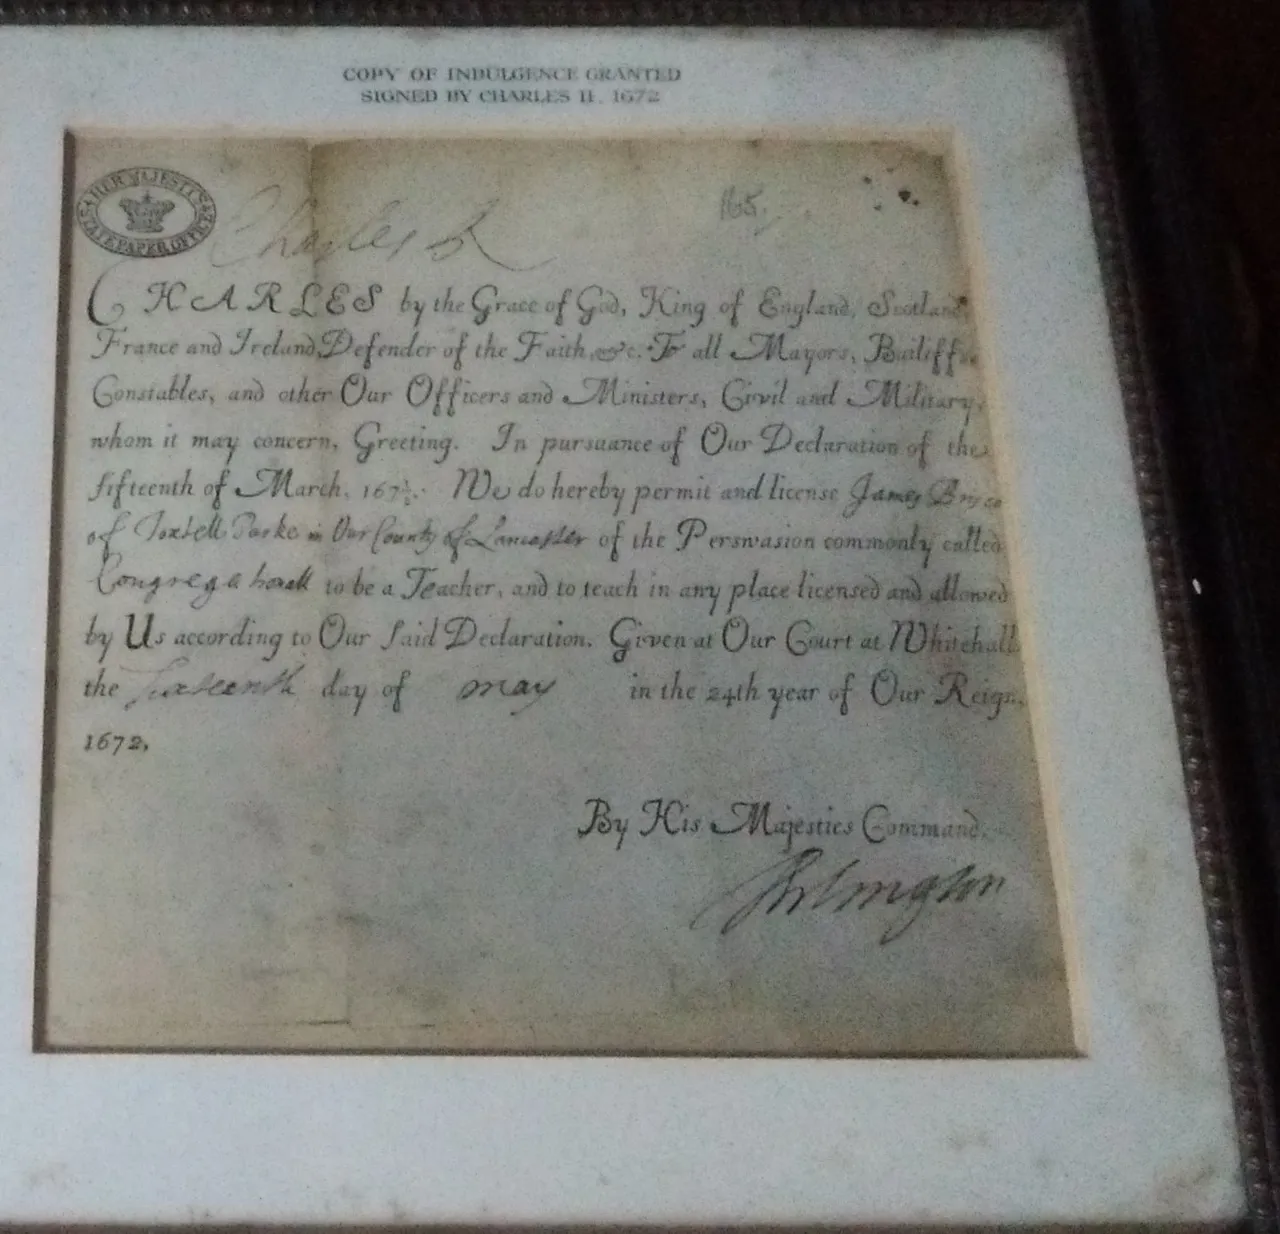 COPY OF INDULGENCE GRANTED
SIGNED BY CHARLES II. 1672
HER MAJESTY'S
STATE PAPER OFFICE
Charles R
165.
CHARLES by the Grace of God, King of England, Scotland,
France and Ireland, Defender of the Faith, &c. To all Mayors, Bailiffs,
Constables, and other Our Officers and Ministers, Civil and Military,
whom it may concern, Greeting. In pursuance of Our Declaration of the
fifteenth of March, 167½. We do hereby permit and license James
of Toxteth Parke in Our County of Lancaster of the Perswasion commonly called
Congregationall to be a Teacher, and to teach in any place licensed and allowed
by Us according to Our said Declaration. Given at Our Court at Whitehall
the Sixteenth day of may in the 24th year of Our Reign,
1672,
By His Majesties Command.
Arlington